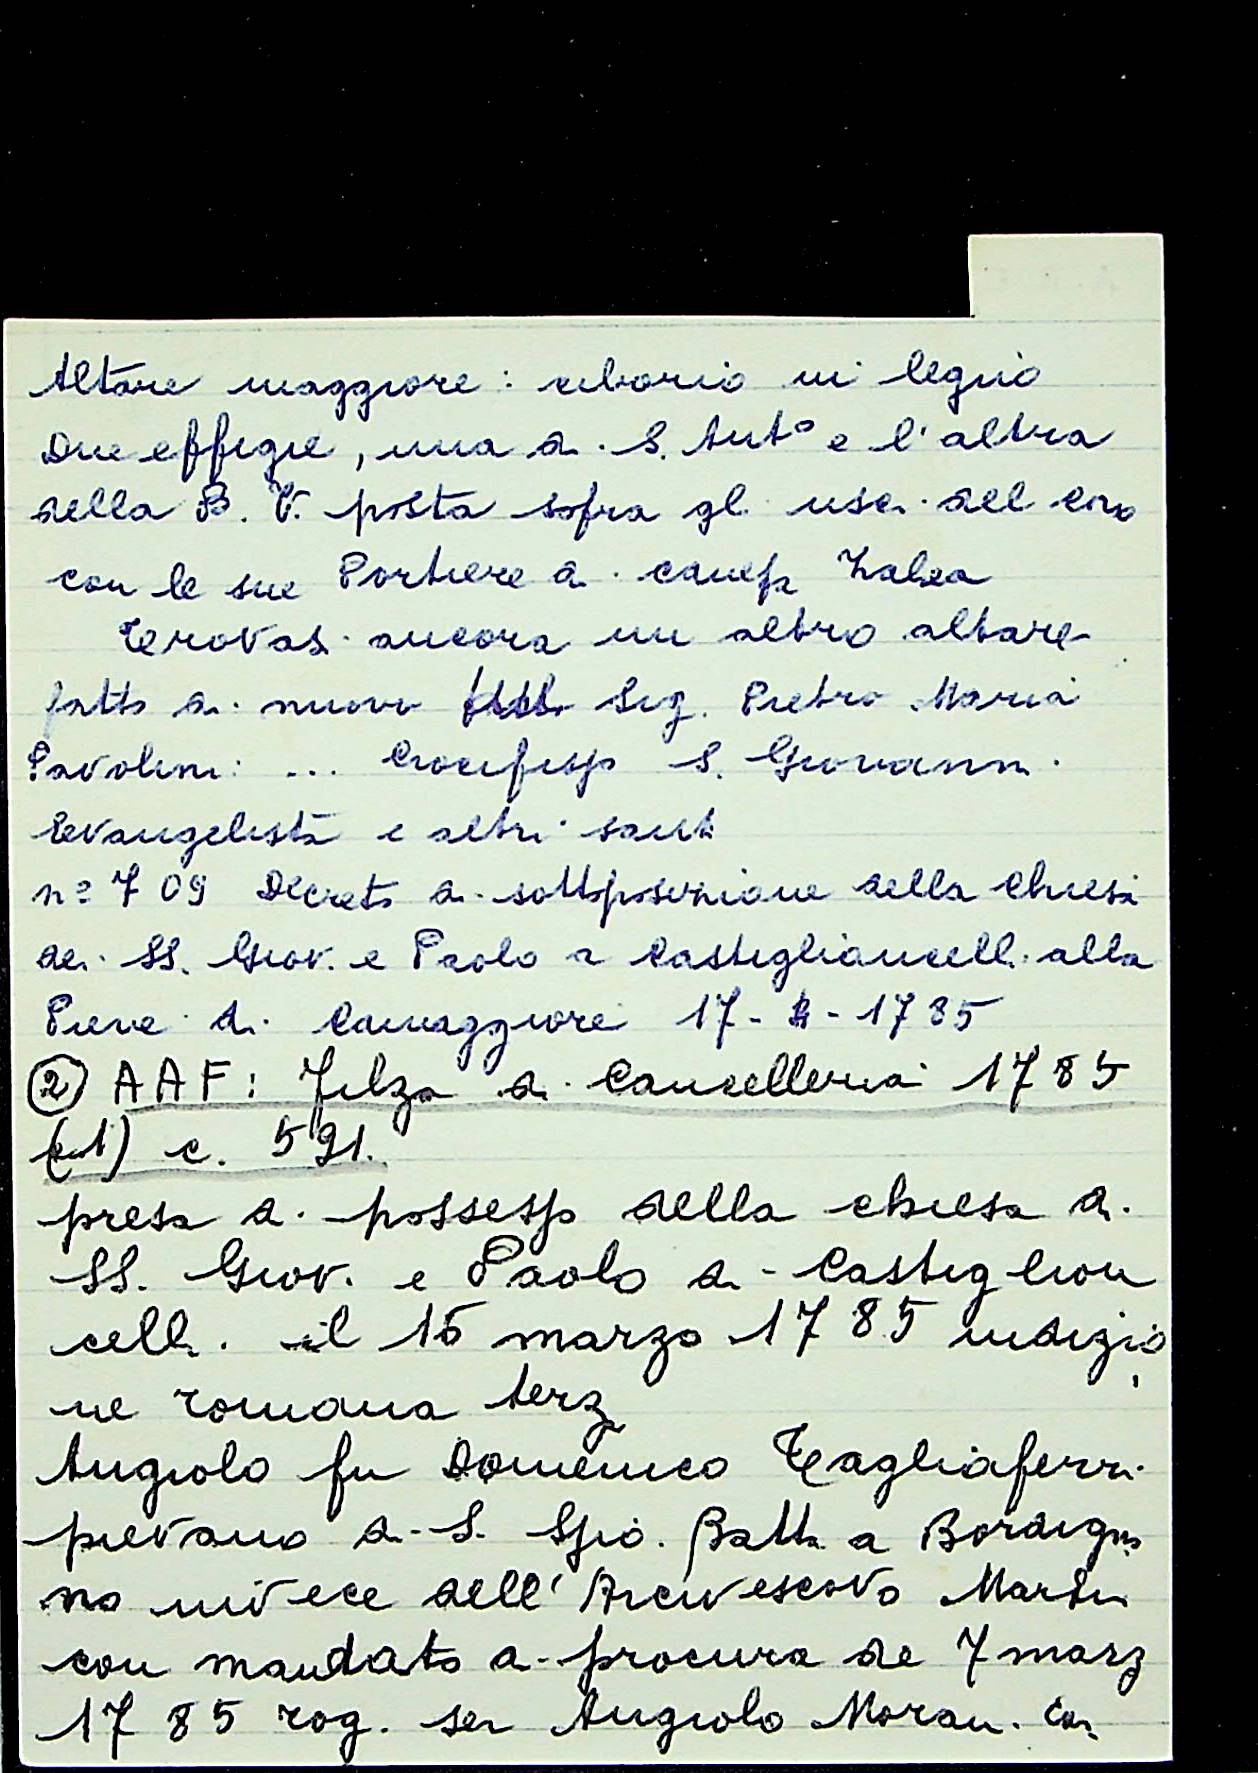 Altare maggiore: ciborio in legno
Due effigie, una di S. Ant° e l'altra
della B. V. posta sopra gli usci del coro
con le sue Portiere di
Trovasi ancora un altro altare
fatto di nuovo Sig. Pietro Maria
Pavolini: ... Crocifisso S. Giovanni
Evangelista e altri santi
n° 709 Decreto di sottoposizione della Chiesa
dei SS. Giov. e Paolo a Castiglioncelli alla
Pieve di Camaggiore 17- -1785
② AAF: Filza di Cancelleria 1785
c. 591.
presa di possesso della chiesa di
SS. Giov. e Paolo di Castiglion
celli. il 15 marzo 1785 indizio
ne romana terz
Angiolo fu Domenico Tagliaferri
pievano di S. Gio. Batta a Bordign
no invece dell'Arcivescovo Martini
con mandato di procura de 7 marz
1785 rog. ser Angiolo Moran.